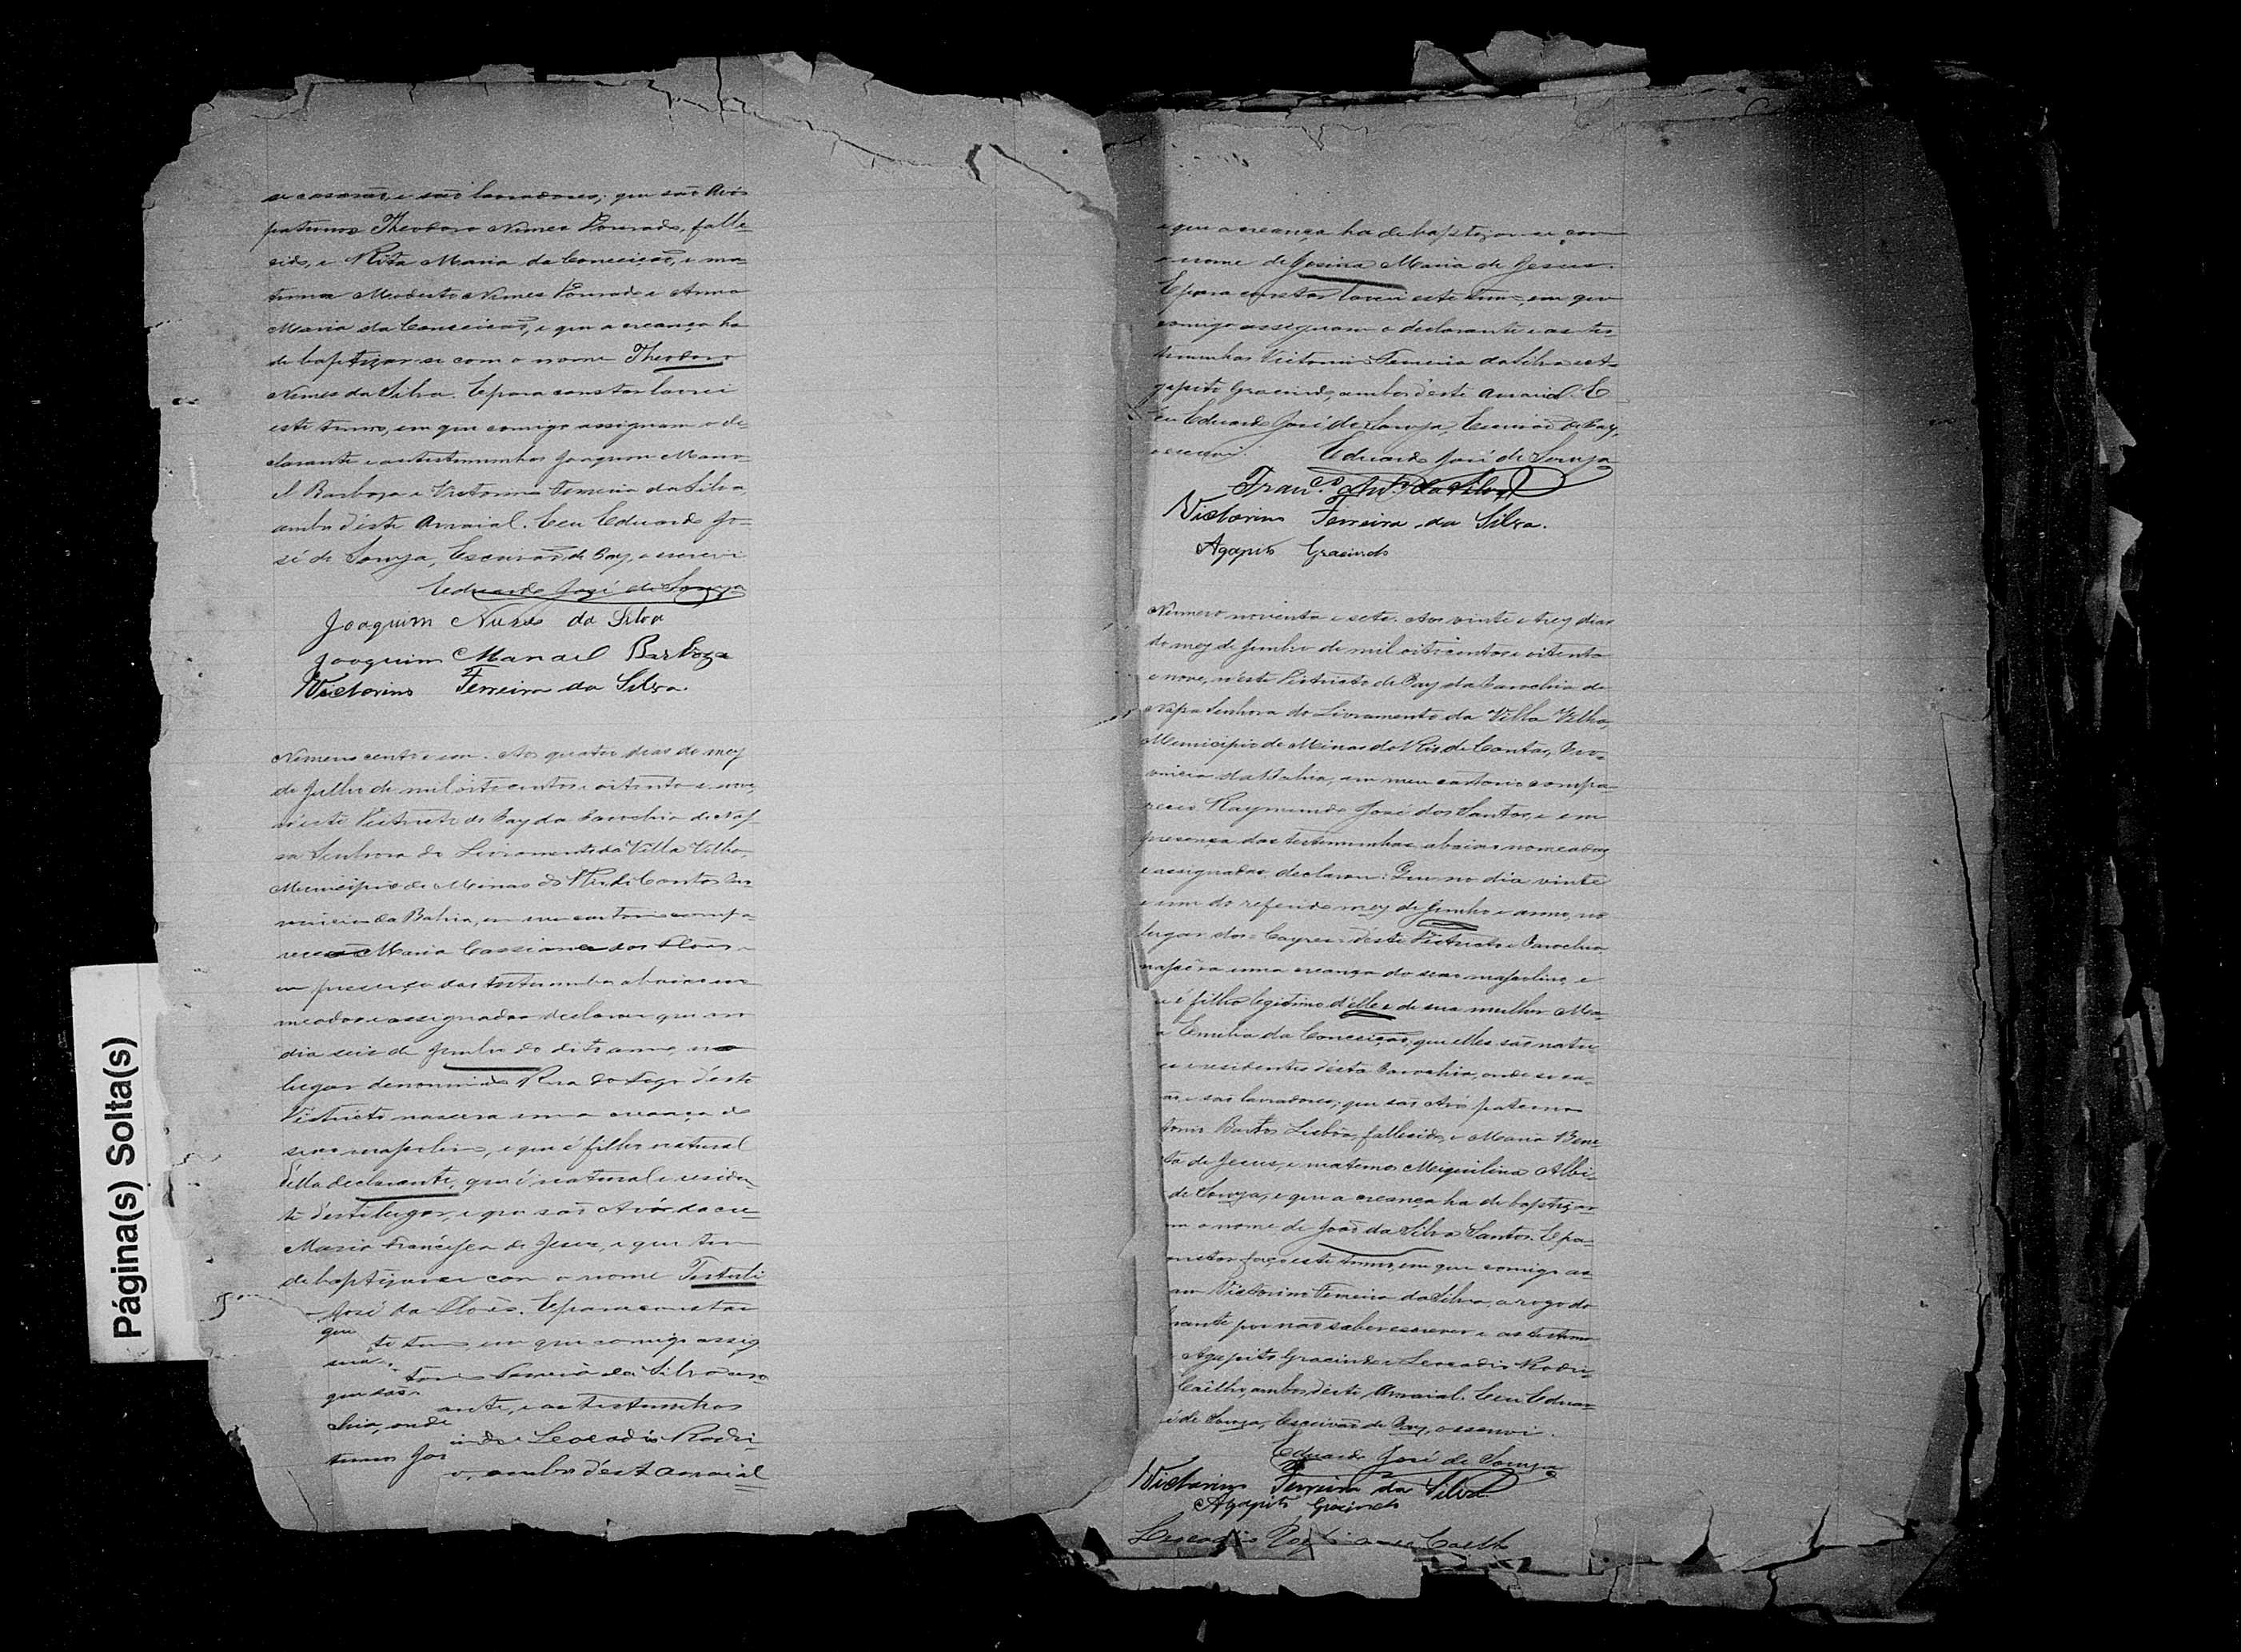 se casarão, e são lavradores; que são Avós
paternos Theodoro Nunes Dourado, falle-
cido, e Rita Maria da Conceição, e ma-
ternos Modesto Nunes Dourado e Anna
Maria da Conceição, e que a creança ha
de baptizar-se com o nome Theodoro
Nunes da Silva. E para constar lavrei
este termo, em que comigo assignam o de-
clarante e as testemunhas Joaquim Mano-
el Barboza e Victorino Ferreira da Silva,
ambos d'este Arraial. Eu Eduardo Jo-
sé de Souza, Escrivão de Paz, o escrevi.
Eduardo José de Souza
Joaquim Nunes da Silva
Joaquim Manoel Barboza
Victorino Ferreira da Silva.
Numero cento e um. Aos quatro dias do mez
de Julho de mil oitocentos e oitenta e nove,
n'este Districto de Paz da Parochia de Nos-
sa Senhora do Livramento da Villa Velha,
Municipio de Minas do Rio de Contas, Pro-
vincia da Bahia, em meu cartorio compa-
receu Maria Cassiana das
em presença das testemunhas abaixo no-
meadas e assignadas declarou que no
dia seis de Junho do dito anno, no
lugar denominado do Fogo d'este
Districto nascera uma creança do
sexo masculino, e que é filho natural
d'ella declarante, que é natural e residen-
te d'este lugar, e que são Avós
Maria Francisca de Jesus, e que tem
de baptizar-se com o nome
José E para constar
que te termo em que comigo assig
Ferreira da Silva
que são ante, e as testemunhas
chia, onde Leocadio Rodri-
ternos Jos o, ambos d'este Arraial
Página(s) Solta(s)
e que a creança ha de baptizar-se com
o nome de Josina Maria de Jesus.
E para constar lavrei este termo, em que
comigo assignam o declarante e as tes-
temunhas Victorino Ferreira da Silva e A-
gapito Gracindo, ambos d'este Arraial. E
eu Eduardo José de Souza, Escrivão de Paz,
o escrevi. Eduardo José de Souza
Franco. Anto. da Silva
Victorino Ferreira da Silva.
Agapito Gracindo
Numero noventa e sete. Aos vinte e trez dias
do mez de Junho de mil oitocentos e oitenta
e nove, n'este Districto de Paz da Parochia de
Nossa Senhora do Livramento da Villa Velha,
Municipio de Minas do Rio de Contas, Pro-
vincia da Bahia, em meu cartorio compa-
receu Raymundo José dos Santos, e em
presença das testemunhas abaixo nomeadas
e assignadas, declarou: Que no dia vinte
e um do referido mez de Junho e anno, no
lugar dos d'este Districto e Parochia
nascêra uma creança do sexo masculino, e
é filho legitimo d'elle e de sua mulher Ma-
a Emilia da Conceição, que elles são natu-
es e residentes d'esta Parochia, onde se ca-
ão, e são lavradores; que são Avós paternos
tonio Bastos Lisbôa, fallecido, e Maria Bene-
ta de Jesus, e maternos Miquilina Albi-
de Souza, e que a creança ha de baptizar
m o nome de João da Silva Santos. E pa-
onstar faço este termo, em que comigo as-
am Victorino Ferreira da Silva, a rogo do
rante por não saber escrever e as testemu-
Agapito Gracindo e Leocadio Rodri-
Coêlho, ambos d'este Arraial. Eu Eduar-
é de Souza, Escrivão de Paz, o escrevi.
Eduardo José de Souza
Victorino Ferreira da Silva
Agapito Gracindo
Leocadio Coelho